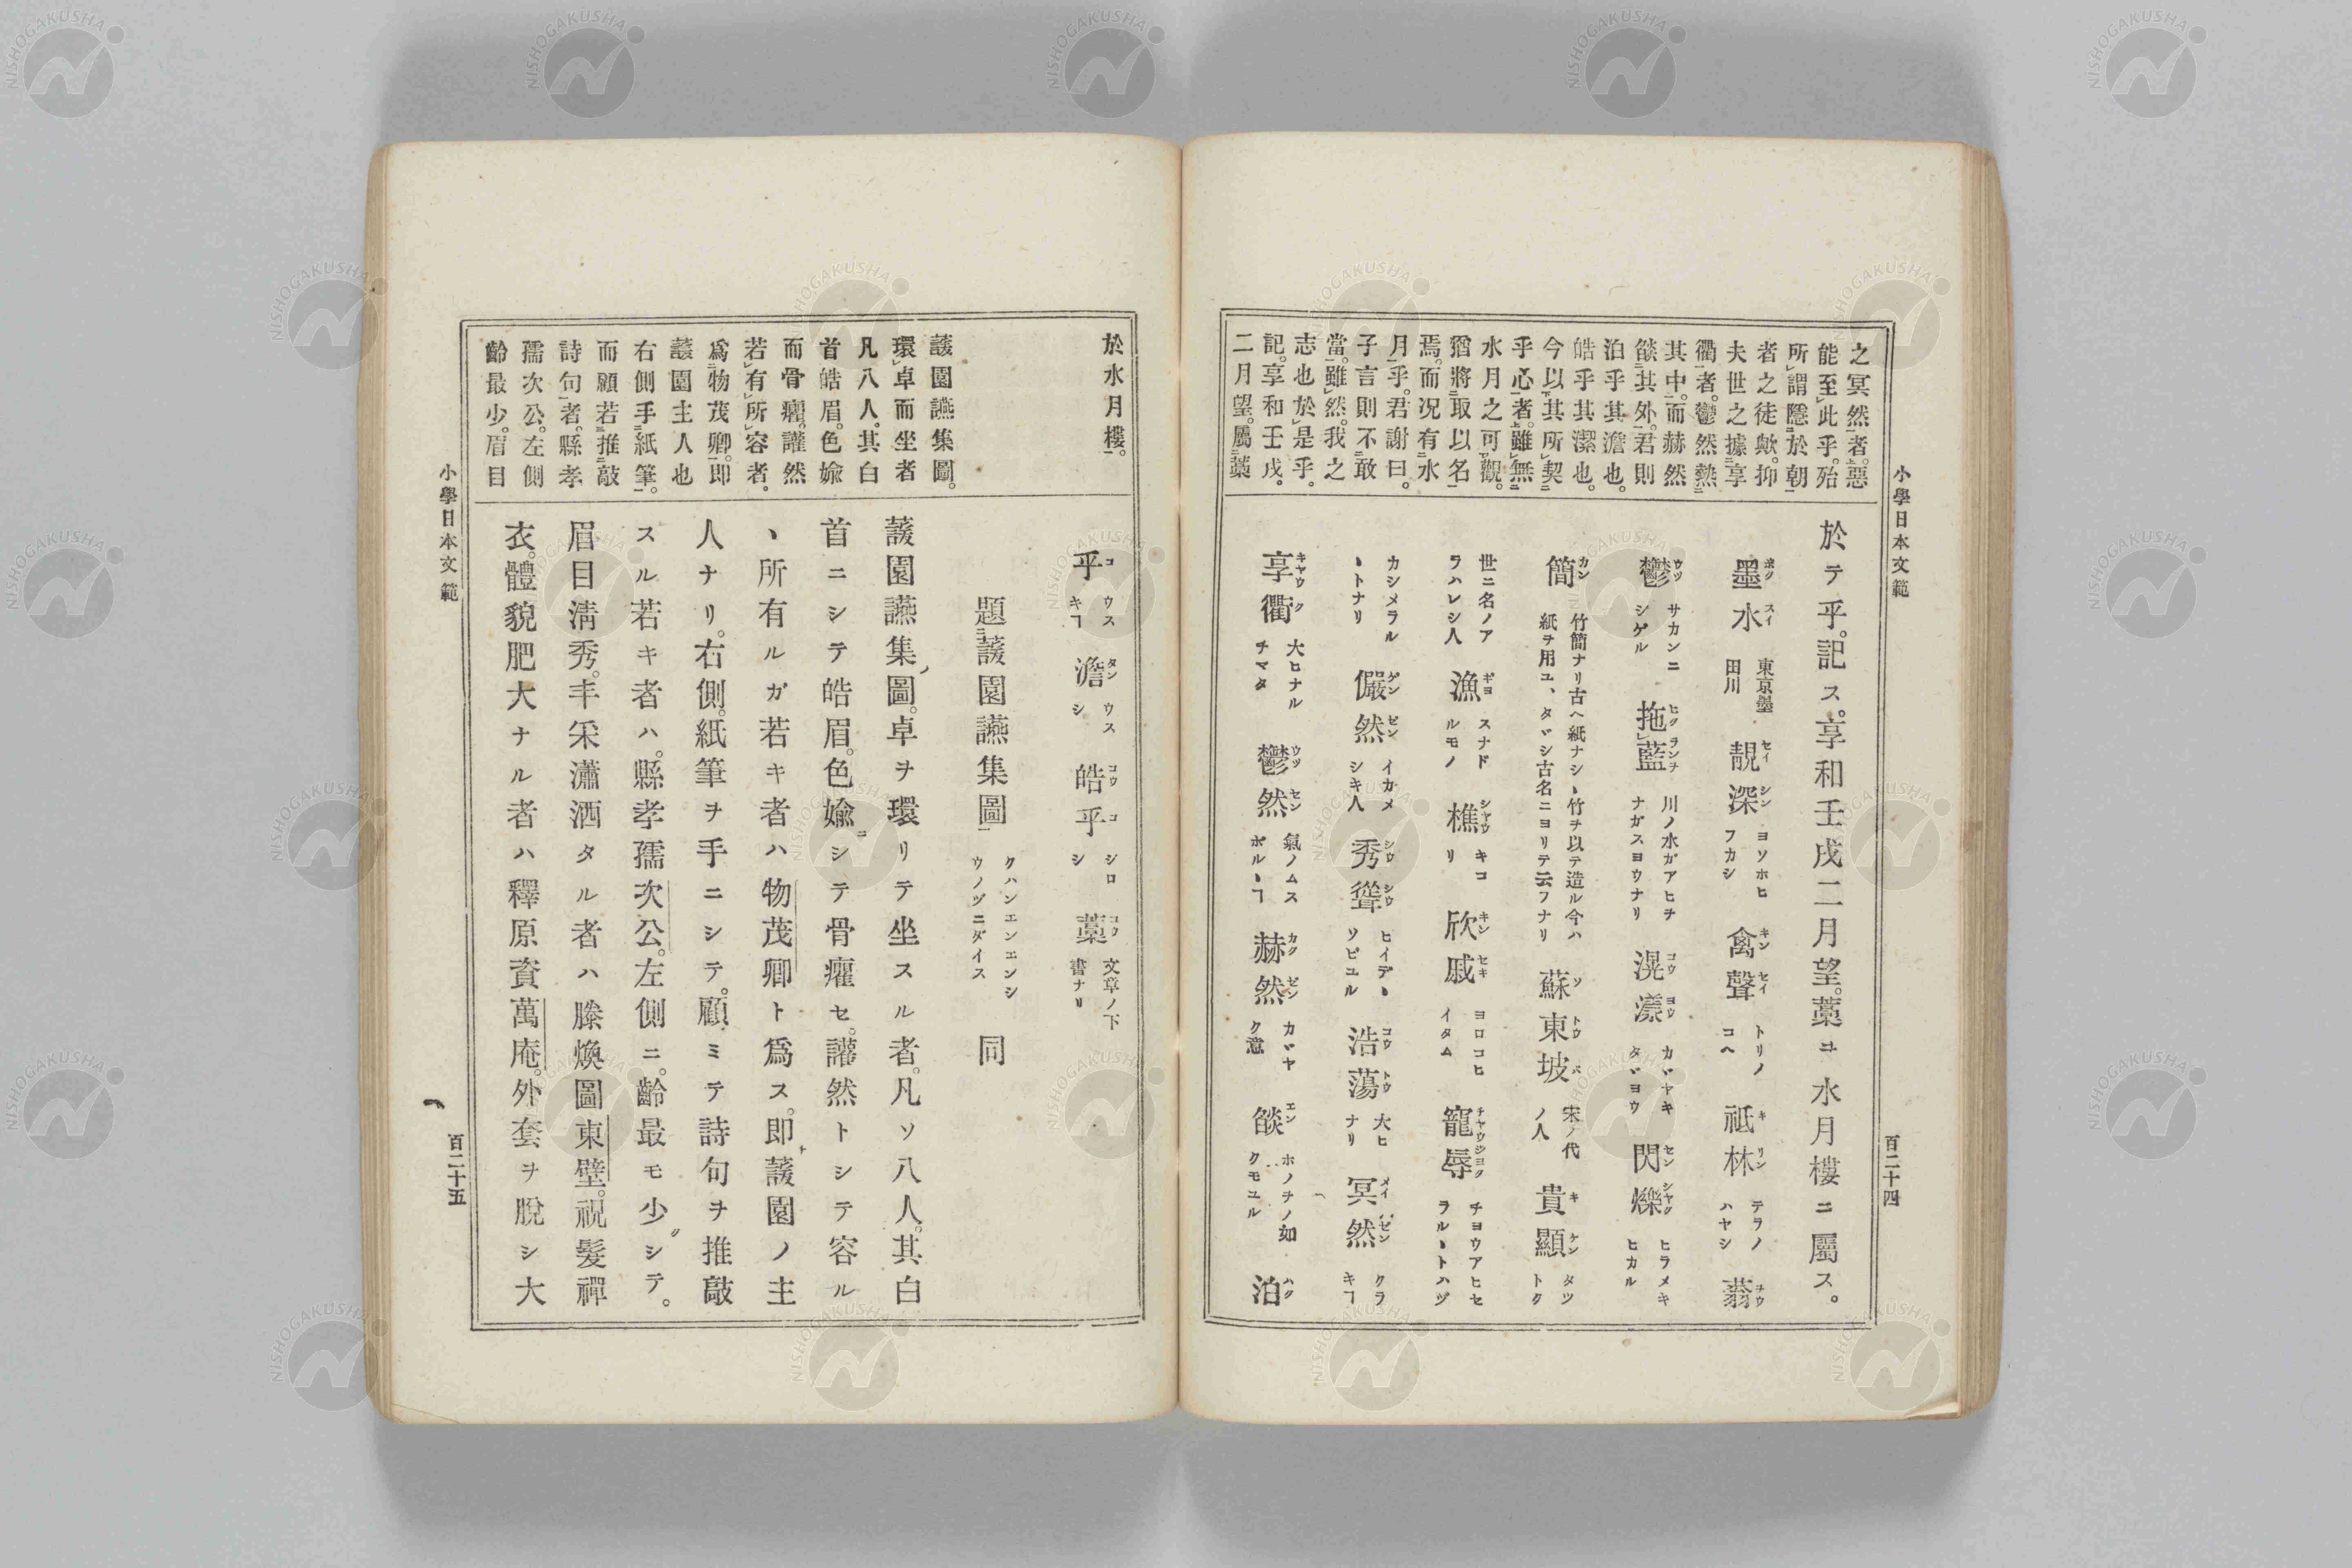 小學日本文範
百二十四
之冥然者。惡
能至此乎。殆
所謂隱於朝
者之徒歟。抑
夫世之據享
衢者。鬱然熱
其中。而赫然
燄其外。君則
泊乎其澹也。
皓乎其潔也。
今以其所契
乎心者。雖無
水月之可觀。
猶將取以名
焉。而况有水
月乎。君謝曰。
子言則不敢
當。雖然。我之
志也於是乎。
記。享和壬戌。
二月望。屬藁
於テ乎。記ス。享和壬戌二月望。藁ヲ水月樓ニ屬ス。
墨水 ボクスイ 東京墨田川 靚深 セイシン ヨソホヒフカシ 禽聲 キンセイ トリノコヘ 祗林 キリン テラノハヤシ 蓊 ヲウ
鬱 ウツ サカンニシゲル 拖藍 ヒクランヲ 川ノ水ガアヒヲナガスヨウナリ 滉瀁 コウヨウ カヾヤキタヾヨウ 閃爍 センシヤク ヒラメキヒカル
簡 カン 竹簡ナリ古ヘ紙ナシヽ竹ヲ以テ造ル今ハ紙ヲ用ユ、タヾシ古名ニヨリテ云フナリ 蘇東坡 ソトウバ 宋ノ代ノ人 貴顯 キケン タツトク
世ニ名ノアラハレシ人 漁 ギヨ スナドルモノ 樵 シヤウ キコリ 欣戚 キンセキ ヨロコヒイタム 寵辱 チヤウジヨク チヨウアヒセラルヽトハヅ
カシメラルヽトナリ 儼然 ゲンゼン イカメシキ人 秀聳 シウシウ ヒイデヽソビユル 浩蕩 コウトウ 大ヒナリ 冥然 メイゼン クラキヿ
享衢 キヤウク 大ヒナルチマタ 鬱然 ウツゼン 氣ノムスボルヽヿ 赫然 カクゼン カヾヤク意 燄 エン ホノヲノ如クモユル 泊 ハク
小學日本文範
百二十五
於水月樓。
蘐園讌集圖。
環卓而坐者
凡八人。其白
首皓眉。色婾
而骨癯。讙然
若有所容者。
爲物茂卿。即
蘐園主人也
右側手紙筆。
而顧若推敲
詩句者。縣孝
孺次公。左側
齡最少。眉目
乎 コ ウスキヿ 澹 タン ウスシ 皓乎 コウコ シロシ 藁 コウ 文章ノ下書ナリ
題蘐園讌集圖 クハンエンエンシウノヅニダイス 同
蘐園讌集ノ圖。卓ヲ環リテ坐スル者。凡ソ八人。其白
首ニシテ皓眉。色婾ニシテ骨癯セ。讙然トシテ容ル
ヽ所有ルガ若キ者ハ物茂卿ト爲ス。即チ蘐園ノ主
人ナリ。右側。紙筆ヲ手ニシテ。顧ミテ詩句ヲ推敲
スル若キ者ハ。縣孝孺次公。左側ニ。齡最モ少クシテ。
眉目淸秀。丰采瀟洒タル者ハ滕煥圖東壁。祝髮禪
衣。體貌肥大ナル者ハ釋原資萬庵。外套ヲ脫シ大